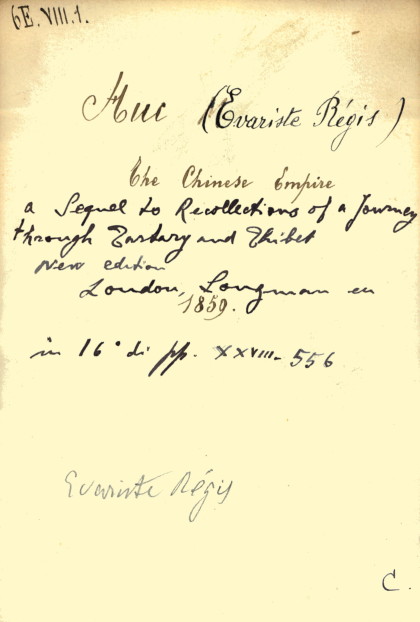 6E.VIII.1.
Huc (Evariste Régis)
The Chinese Empire
a Sequel to Recollections of a Journey
through Tartary and Thibet
New edition
London, Longman en
1859.
in 16° di pp. XXVIII-556
Evariste Régis
C.